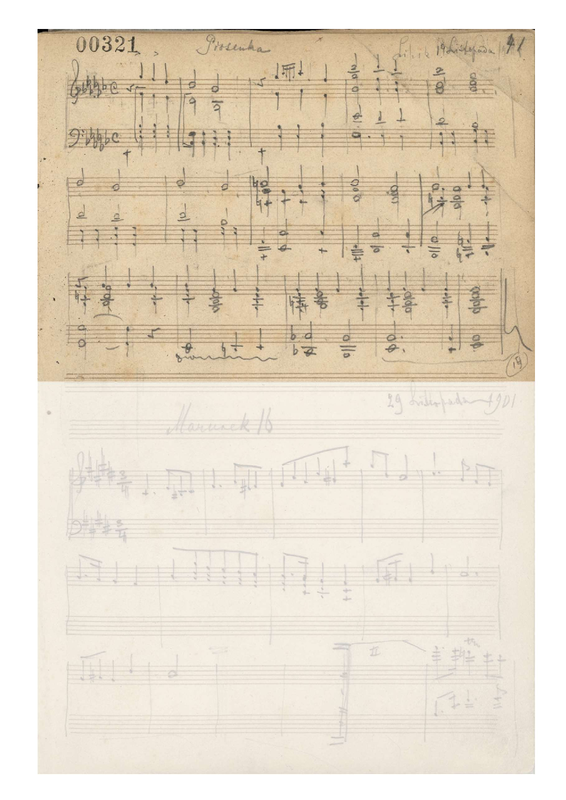 00321 Piosenka 19 Listopada 41
14
29 Listopada 1901
Mazurek 16
3/4
3/4
II